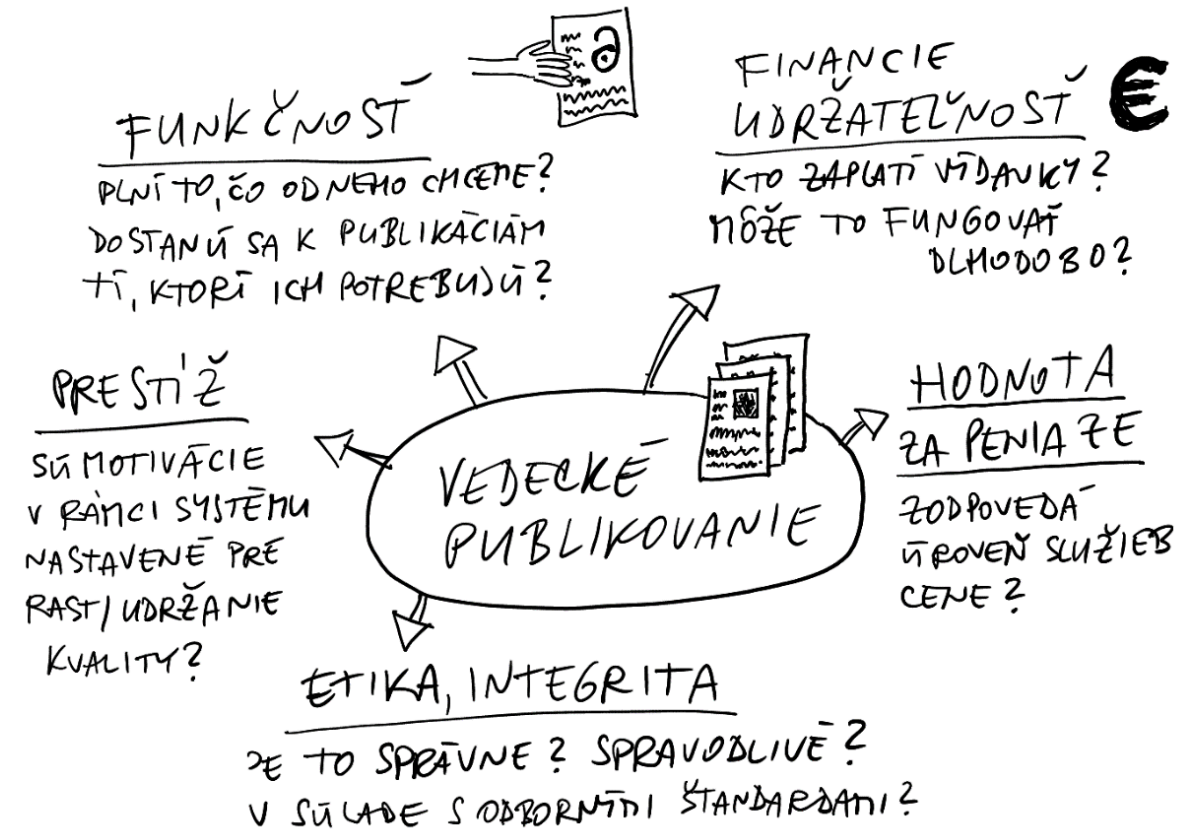 FUNKČNOSŤ
PLNÍ TO, ČO OD NEHO CHCEME?
DOSTANÚ SA K PUBLIKÁCIÁM
TÍ, KTORÍ ICH POTREBUJÚ?
FINANCIE
UDRŽATEĽNOSŤ
€
KTO ZAPLATÍ VÝDAVKY?
MÔŽE TO FUNGOVAŤ
DLHODOBO?
PRESTÍŽ
SÚ MOTIVÁCIE
V RÁMCI SYSTÉMU
NASTAVENÉ PRE
RAST/UDRŽANIE
KVALITY?
VEDECKÉ
PUBLIKOVANIE
HODNOTA
ZA PENIAZE
ZODPOVEDÁ
ÚROVEŇ SLUŽIEB
CENE?
ETIKA, INTEGRITA
JE TO SPRÁVNE? SPRAVODLIVÉ?
V SÚLADE S ODBORNÝMI ŠTANDARDAMI?